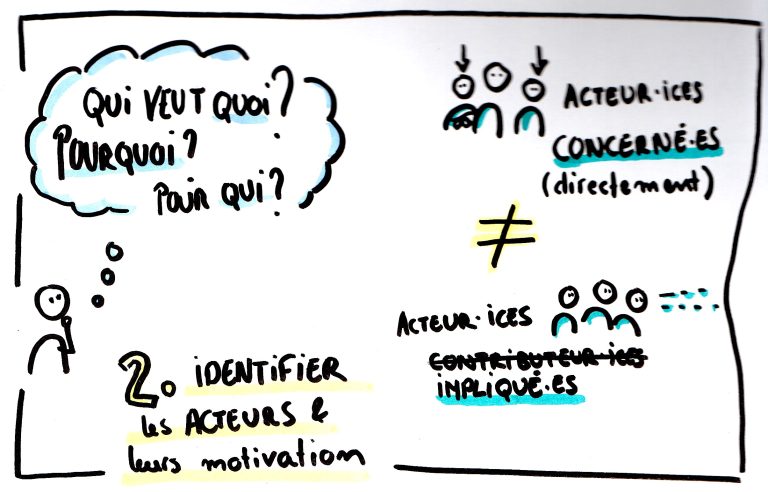 QUI VEUT QUOI?
POURQUOI?
POUR QUI?
ACTEUR·ICES
CONCERNÉ·ES
(directement)
≠
ACTEUR·ICES
CONTRIBUTEUR·ICES
IMPLIQUÉ·ES
2. IDENTIFIER
les ACTEURS &
leurs motivation